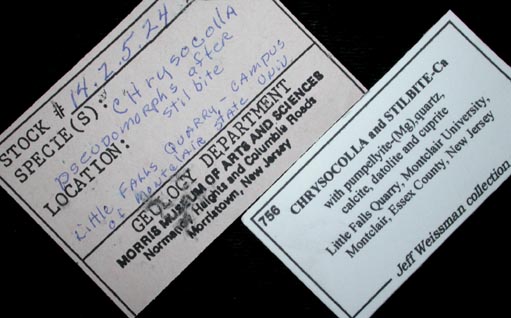 STOCK # 14.2.5.24
SPECIE(S): CHrysocolla
pseudomorphs after
stilbite
LOCATION:
Little Falls QUARRY, CAMPUS
of Montclair State Univ
GEOLOGY DEPARTMENT
MORRIS MUSEUM OF ARTS AND SCIENCES
Normandy Heights and Columbia Roads
Morristown, New Jersey
756
CHRYSOCOLLA and STILBITE-Ca
with pumpellyite-(Mg),quartz,
calcite, datolite and cuprite
Little Falls Quarry, Montclair University,
Montclair, Essex County, New Jersey
Jeff Weissman collection